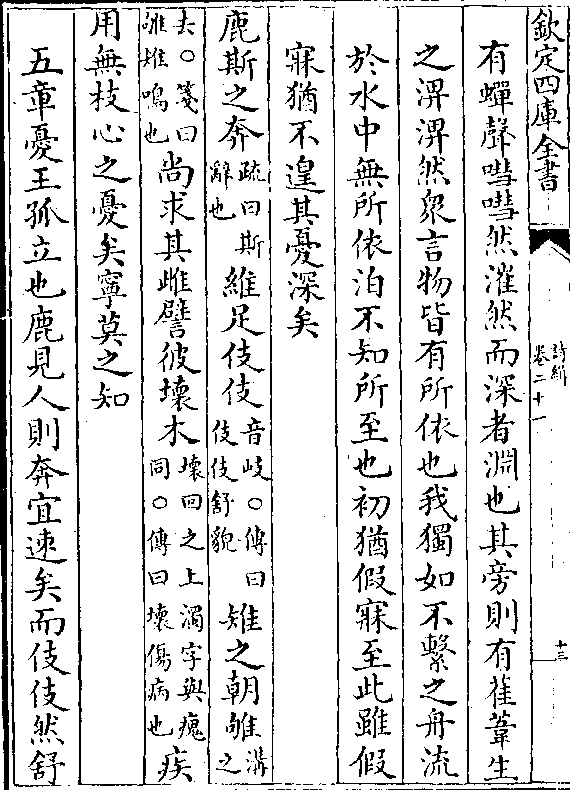 欽定四庫全書
詩緝
卷二十一
十三
有蟬聲嘒嘒然漼然而深者淵也其旁則有萑葦生
之淠淠然衆言物皆有所依也我獨如不繫之舟流
於水中無所依泊不知所至也初猶假寐至此雖假
寐猶不遑其憂深矣
鹿斯之奔疏曰斯辭也維足伎伎音岐○傳曰伎伎舒貌雉之朝雊溝之
去○箋曰雊雉鳴也尚求其雌譬彼壞木壞回之上濁字與瘣同○傳曰壞傷病也疾
用無枝心之憂矣寧莫之知
五章憂王孤立也鹿見人則奔宜速矣而伎伎然舒